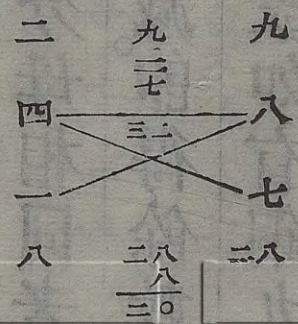 二 九 九
二
七
四 三二 八
一 七
八 二八 二八
八
三〇